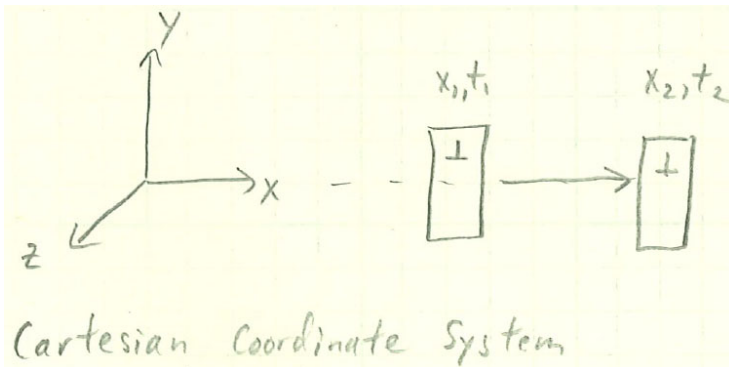 y
x₁,t₁
x₂,t₂
1
1
x
z
Cartesian Coordinate System